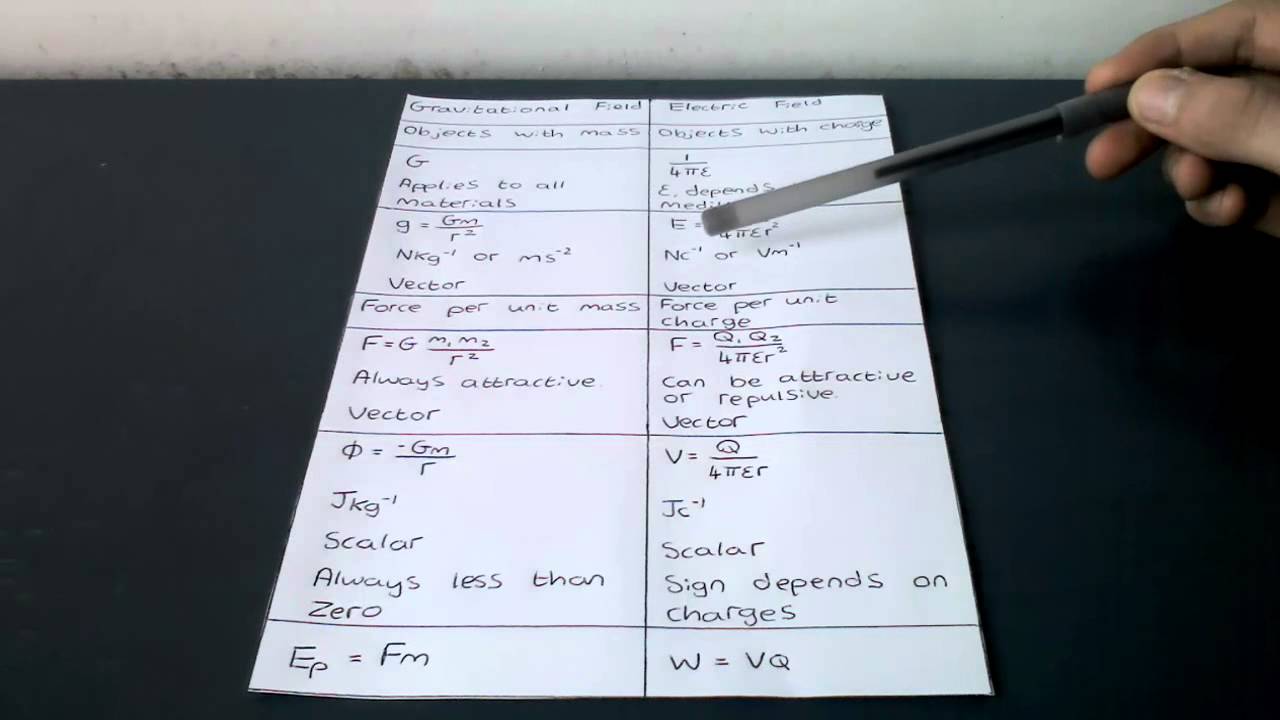 Gravitational Field
Electric Field
Objects with mass
Objects with charge
G
Applies to all
materials
1/4πε
ε, depends
g = Gm/r²
Nkg⁻¹ or ms⁻²
Vector
E =
4πεr²
Nc⁻¹ or Vm⁻¹
Vector
Force per unit mass
Force per unit
charge
F = G m₁ m₂/r²
Always attractive.
Vector
F = Q₁ Q₂/4πεr²
Can be attractive
or repulsive.
Vector
ϕ = -Gm/r
Jkg⁻¹
Scalar
Always less than
Zero
V = Q/4πεr
Jc⁻¹
Scalar
Sign depends on
charges
Ep = Fm
W = VQ